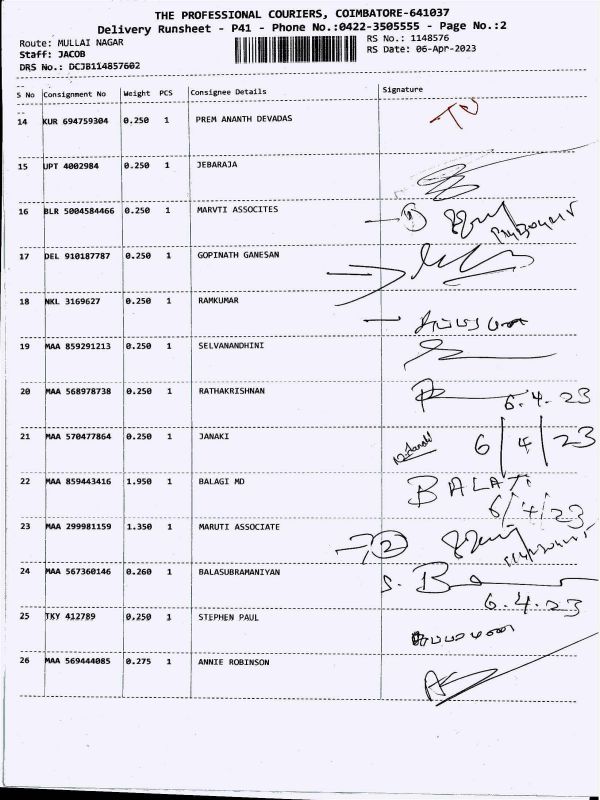 THE PROFESSIONAL COURIERS, COIMBATORE-641037
Delivery Runsheet - P41 - Phone No.:0422-3505555 - Page No.:2
Route: MULLAI NAGAR RS No.: 1148576
Staff: JACOB RS Date: 06-Apr-2023
DRS No.: DCJB114857602
S No Consignment No Weight PCS Consignee Details Signature
14 KUR 694759304 0.250 1 PREM ANANTH DEVADAS
15 UPT 4002984 0.250 1 JEBARAJA
16 BLR 5004584466 0.250 1 MARVTI ASSOCITES
17 DEL 910187787 0.250 1 GOPINATH GANESAN
18 NKL 3169627 0.250 1 RAMKUMAR
19 MAA 859291213 0.250 1 SELVANANDHINI
20 MAA 568978738 0.250 1 RATHAKRISHNAN 6.4.23
21 MAA 570477864 0.250 1 JANAKI 6/4/23
22 MAA 859443416 1.950 1 BALAGI MD BALAJI
6/4/23
23 MAA 299981159 1.350 1 MARUTI ASSOCIATE 2
24 MAA 567360146 0.260 1 BALASUBRAMANIYAN S. B
6.4.23
25 TKY 412789 0.250 1 STEPHEN PAUL
26 MAA 569444085 0.275 1 ANNIE ROBINSON